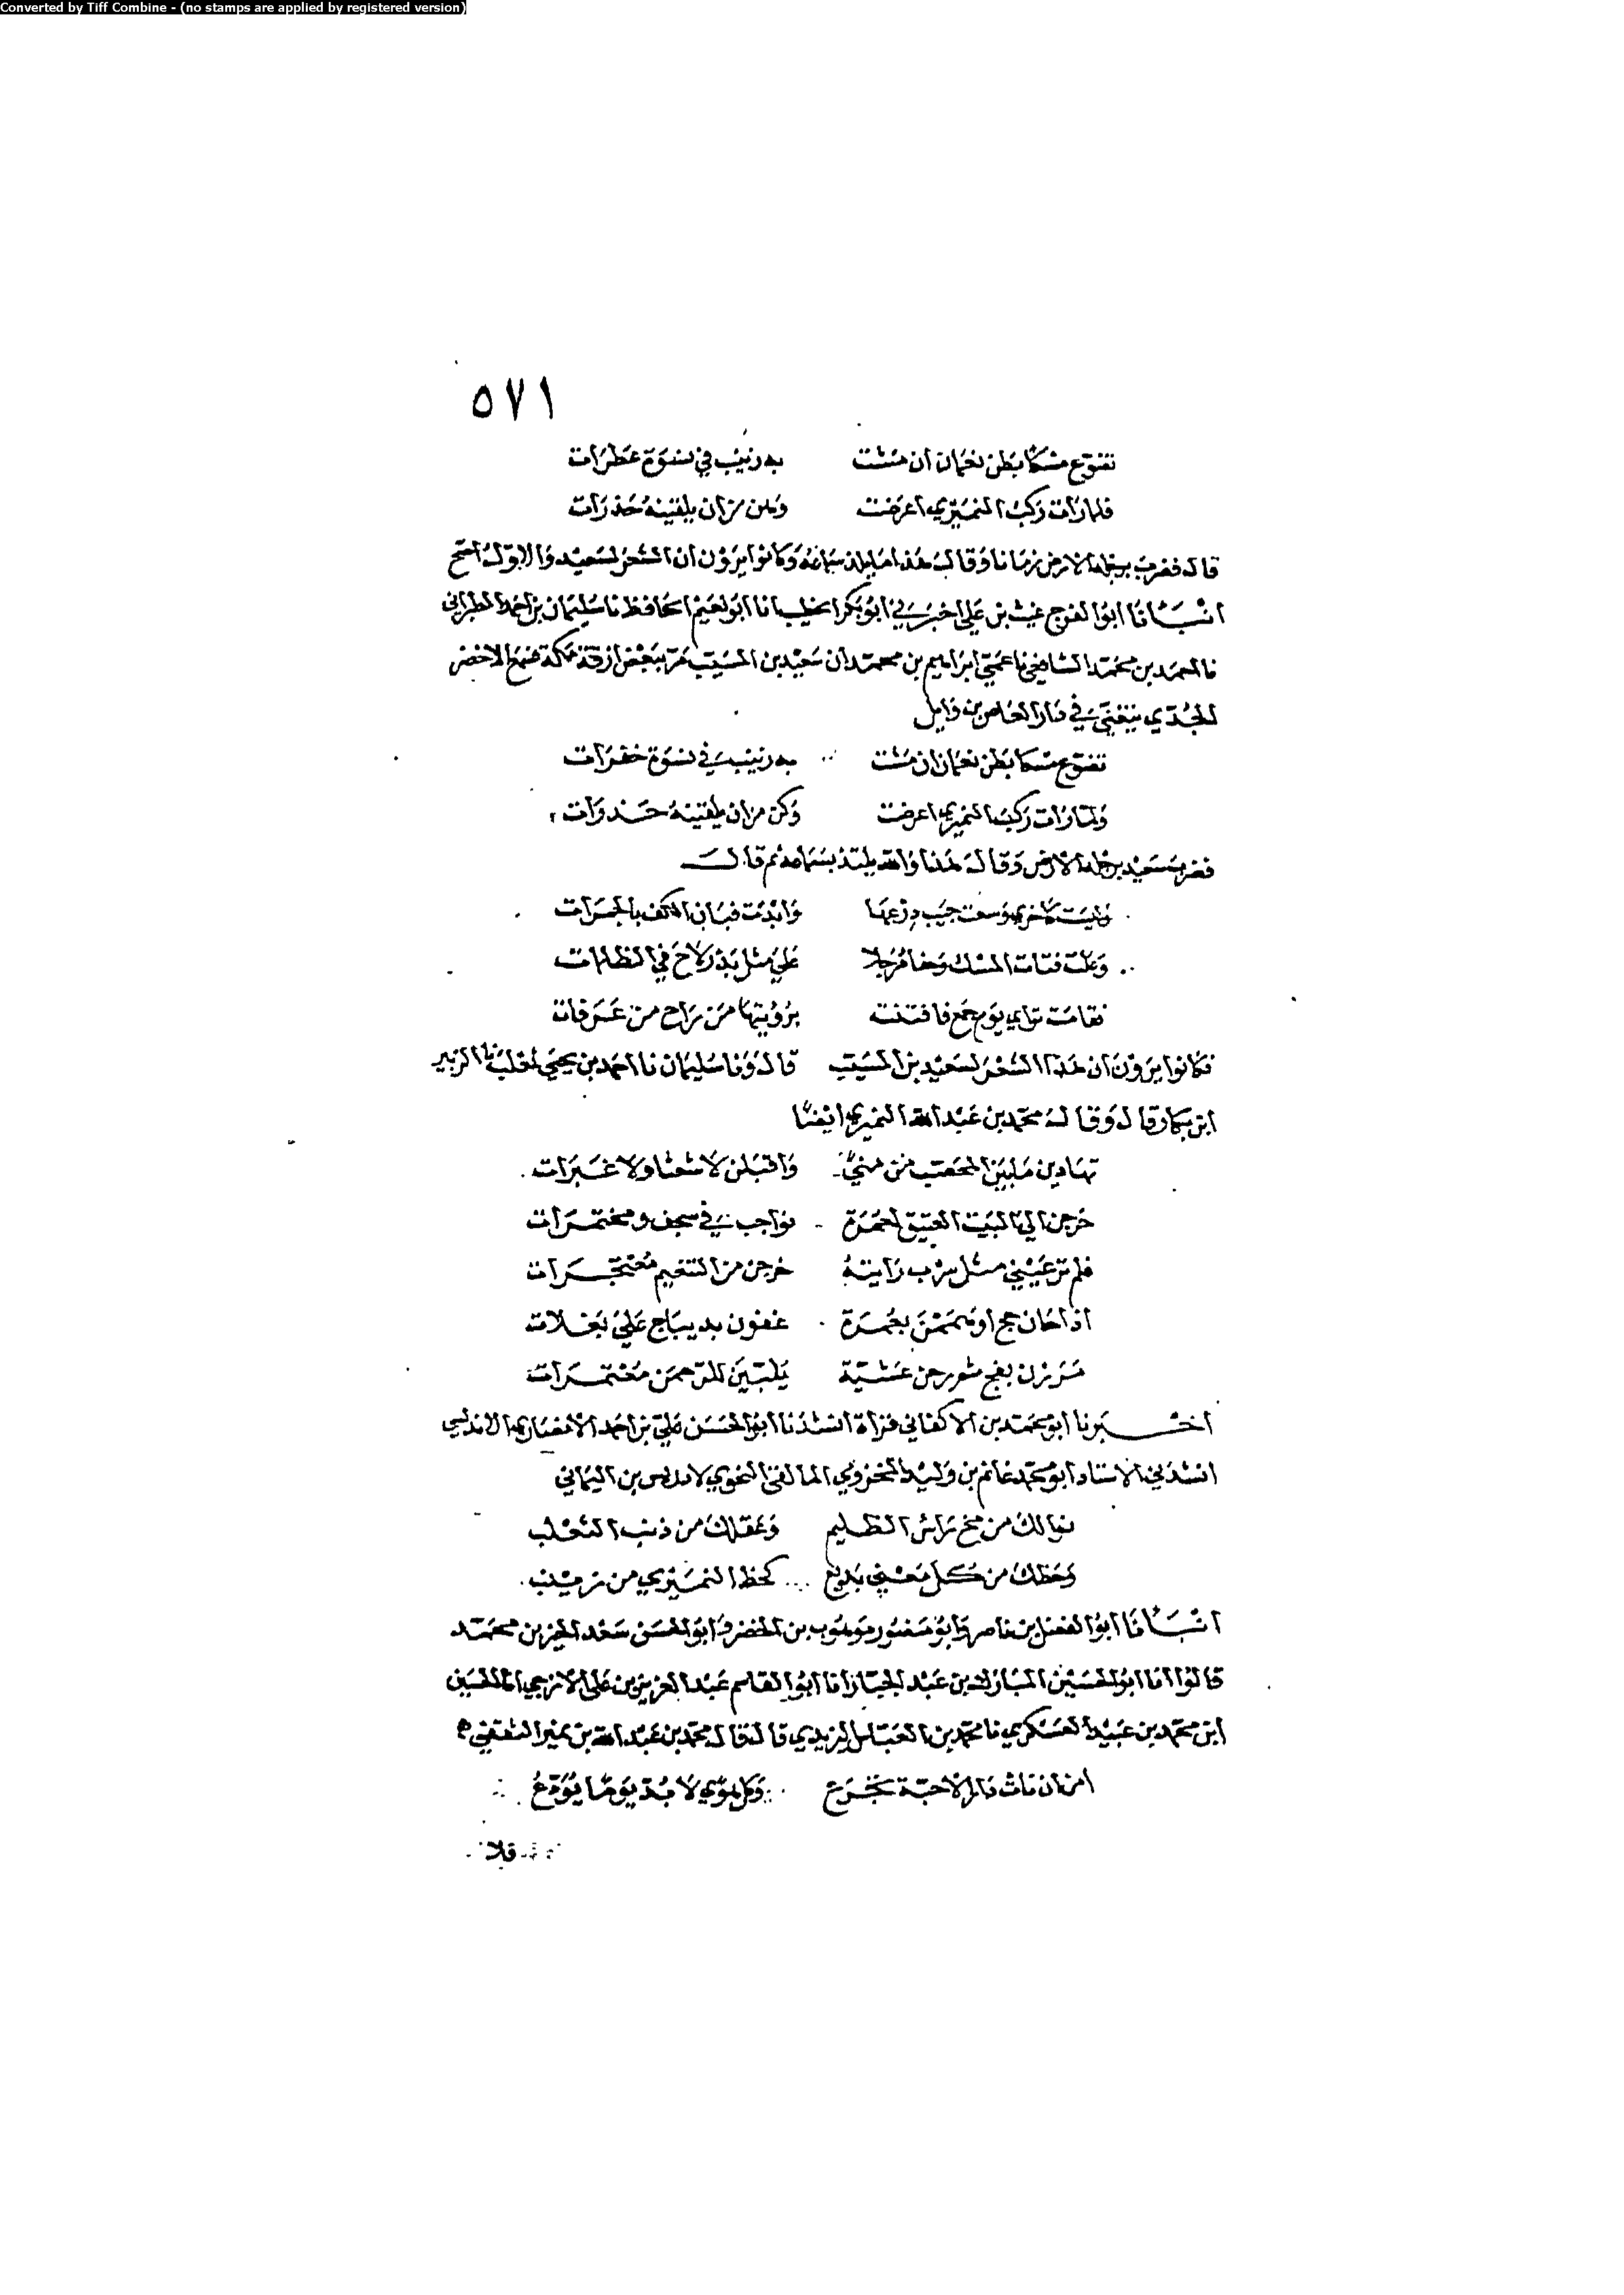 Converted by Tiff Combine - (no stamps are applied by registered version)
٥٧١
تضوع مسكا بطن نعمان ان مشت به زينب في نسوة عطرات
فلما رات ركب النميري اعرضت وهن من ان يلقينه حذرات
قال فضرب برجله الارض زمانا وقال هذا مما يلذ سماعه وكانوا يرون ان الشعر لسعيد والاول اصح
انبانا ابو الفرج غيث بن علي اخبرني ابو بكر الخطيب انا ابو نعيم الحافظ نا سليمان بن احمد الطبراني
نا احمد بن محمد الشافعي نا عمي ابراهيم بن محمد ان سعيد بن المسيب مر ببعض ازقة مكة فسمع الاخضر
الجدي يتغنى في دار العاص بن وايل
تضوع مسكا بطن نعمان ان مشت به زينب في نسوة خفرات
ولما رات ركب النميري اعرضت وكن من ان يلقينه حذرات
فضرب سعيد برجله الارض وقال هذا والله يلتذ بسماعه ثم قال
وليست كاخرى وسعت جيب درعها وابدت بنان الكف بالجمرات
وعلت فتات المسك وحفا مرجلا على مثل بدر لاح في الظلمات
فقامت تراي يوم جمع فافتنت برؤيتها من راح من عرفات
فكانوا يرون ان هذا الشعر لسعيد بن المسيب قال ونا سليمان نا احمد بن يحيى ثعلب نا الزبير
ابن بكار قال وقال محمد بن عبد الله النميري ايضا
تهادين ما بين المحصب من منى واقبلن لا شعثا ولا غبرات
خرجن الى البيت العتيق لعمرة نواجب في سجف ومختمرات
فلم تر عيني مثل سرب رايته خرجن من التنعيم معتجرات
اذا حان حج او تممن بعمرة غفون بديباج على بغلات
مررن بفخ ثم رحن عشية يلبين للرحمن معتمرات
اخبرنا ابو محمد بن الاكفاني قراة انشدنا ابو الحسن علي بن احمد الانصاري الاندلسي
انشدني الاستاد ابو محمد غانم بن وليد المخزومي المالقي النحوي لادريس بن اليماني
نوالك من مخ راس الظليم وعقلك من ذنب الثعلب
وحظك من كل معنى بديع كحظ النميري من زينب
انبانا ابو الفضل بن ناصر وابو منصور موهوب بن الخضر وابو الحسن سعد الخير بن محمد
قالوا انا ابو الحسين المبارك بن عبد الجبار انا ابو القاسم عبد العزيز بن علي الازجي انا الحسين
ابن محمد بن عبيد العسكري نا محمد بن العباس اليزيدي قال قال محمد بن عبد الله بن نمير الثقفي
امن ان نات دار الاحبة تجزع وكل هوى لا بد يوما يودع
فلا